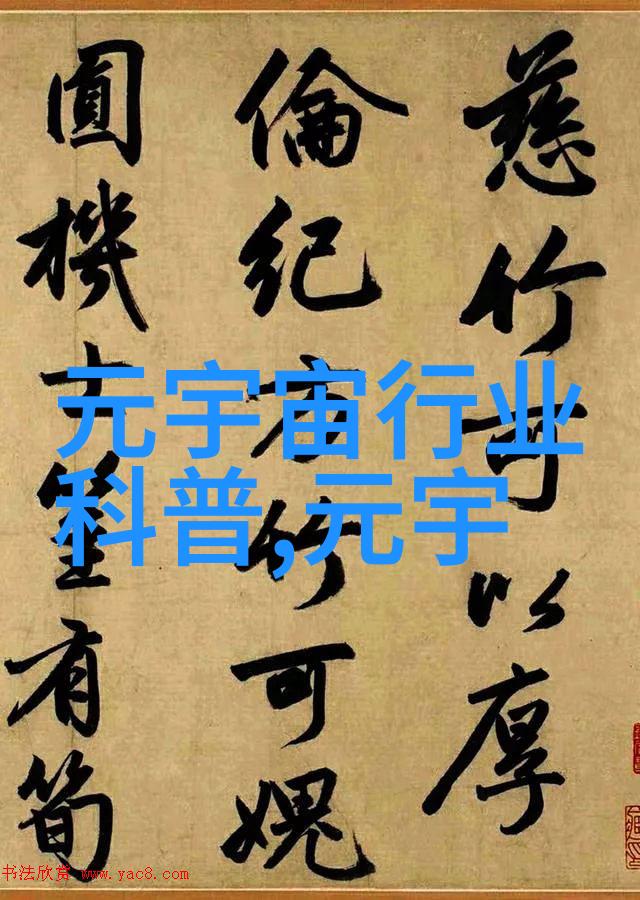 慈竹可以厚
倫紀方竹可愧
圓機士筀有筍
元宇宙行业
科普,元宇
书法欣赏 www.yac8.com